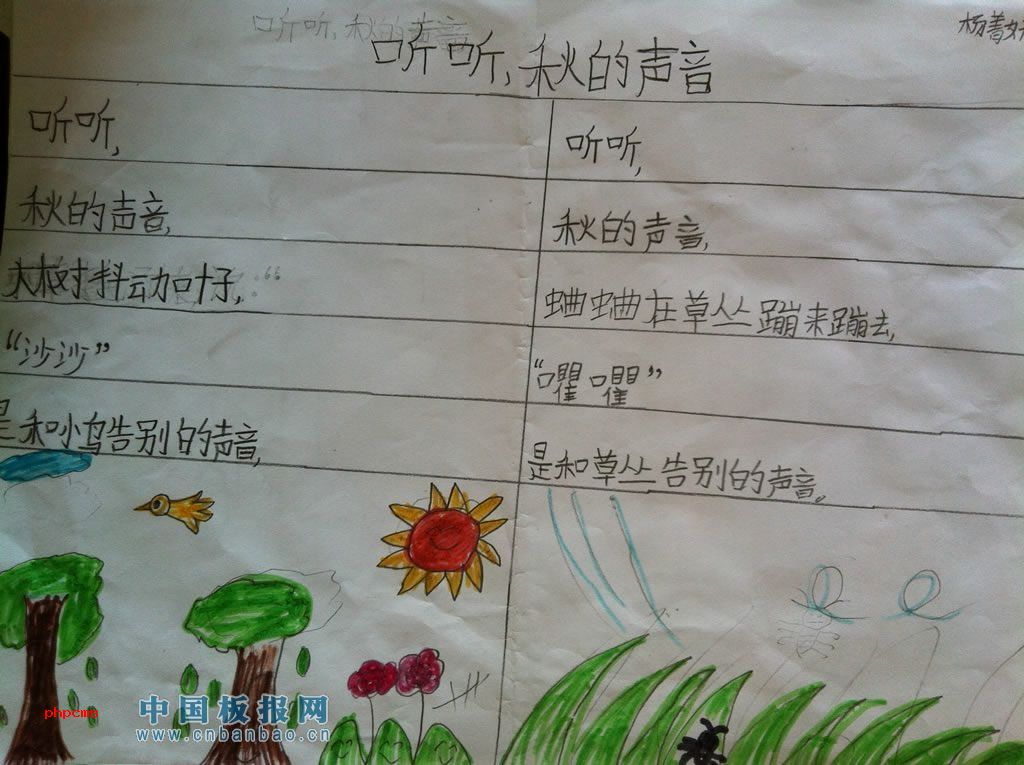 听听,秋的声音
听听,秋的声音
听听,
秋的声音,
大树抖动叶子,
“沙沙”
是和小鸟告别的声音,
听听,
秋的声音,
蛐蛐在草丛蹦来蹦去,
“㘗㘗”
是和草丛告别的声音。
phpcms
中国板报网
www.cnbanbao.cn